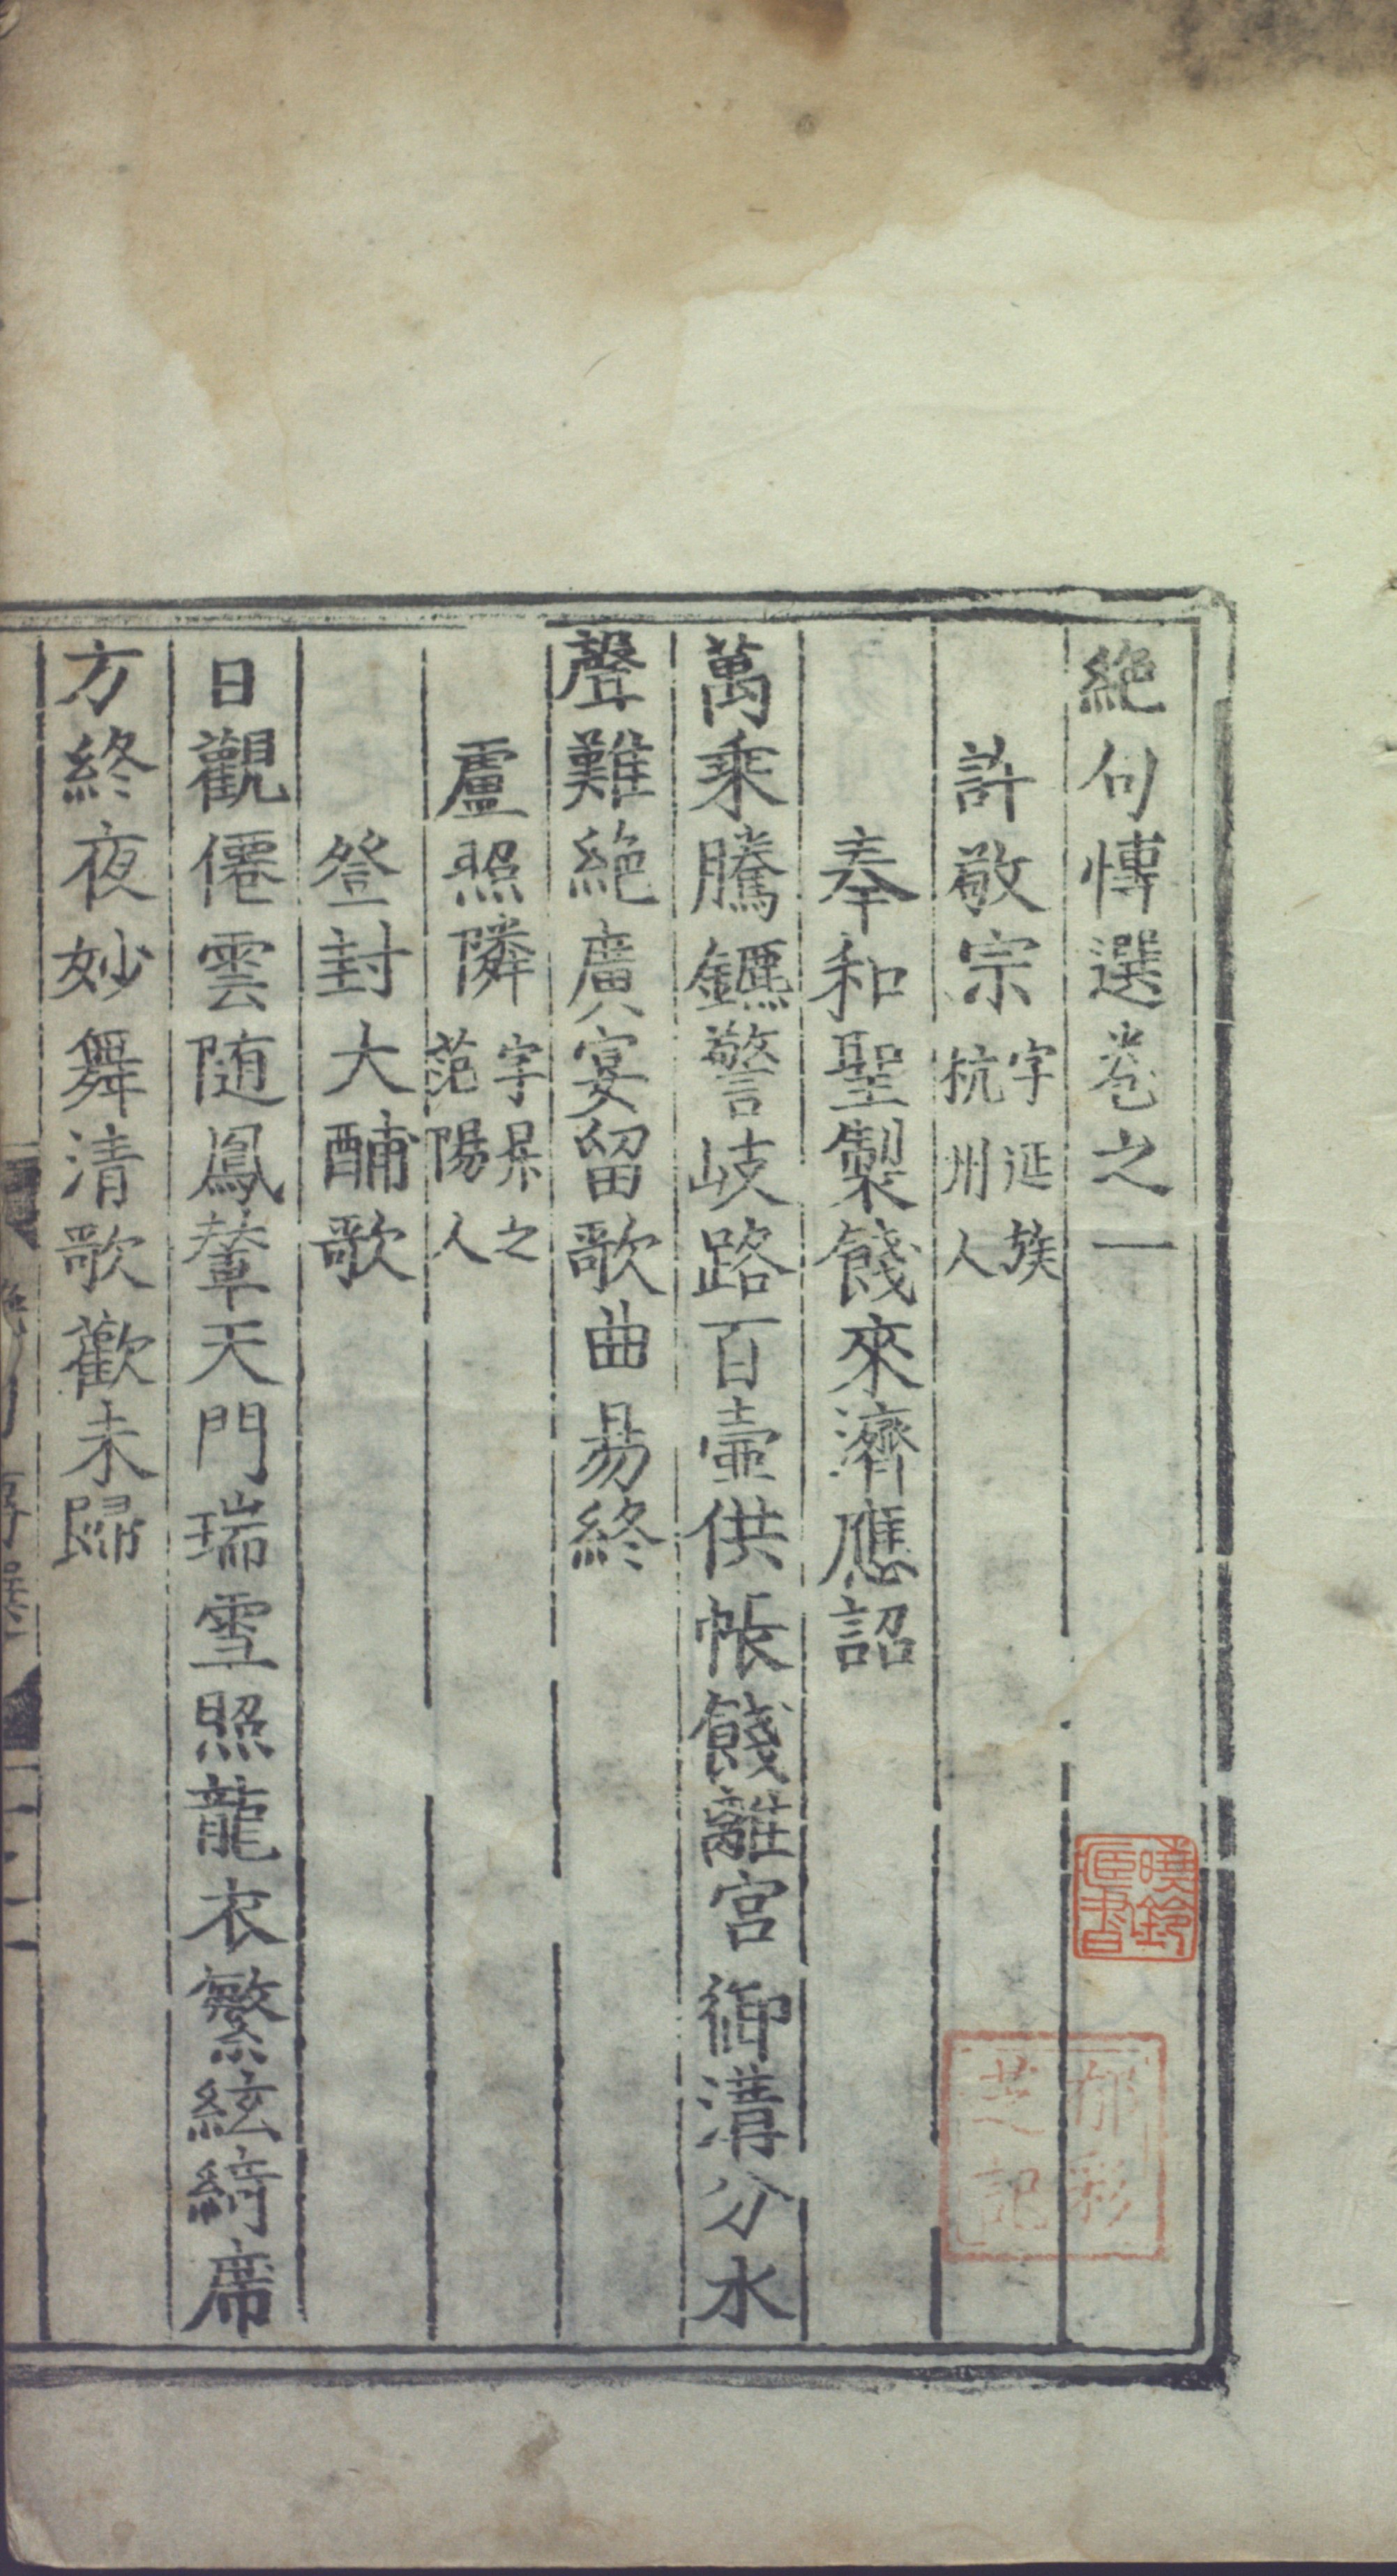 絶句愽選卷之一
許敬宗字延族杭州人
奉和聖製餞來濟應詔
萬乘騰鑣警岐路百壷供帳餞離宮御溝分水
聲難絶廣宴留歌曲易終
盧照隣字昇之范陽人
登封大酺歌
日觀僊雲随鳳輦天門瑞雪照龍衣繁絃綺席
方終夜妙舞清歌歡未歸
曉鈴臣書
郁彩芝記